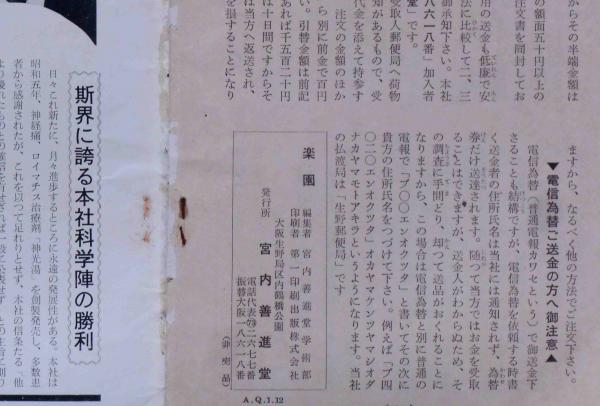 からその半端金額は
の額面五十円以上の
注文書を同封してお
用の送金も低廉で安
法に比較して二、三
御承知下さい。本社
八六一八番」加入者
堂」です。
受取人郵便局へ荷物
知があるもので、受
代金を添えて持参す
い。引替金額は前記
注文の金額のほか
ら別に前金で百円
あれば千五百二十円
は十日間ですからそ
は当方へ返送され、
を損することになり
ますから、なるべく他の方法でご注文下さい。
▼電信為替ご送金の方へ御注意▲
電信為替（普通電報カワセという）で御送金下
さることも結構ですが、電信為替を依頼する時書
く送金者の住所氏名は当社には通知されず、為替
券だけ送達されます。随つて当方ではお金を受取
ることはできますが、送金人がわからぬため、そ
の調査に手間どり、却つて送品がおくれることに
なりますから、この場合は電信為替と別に普通の
電報で「プ〇〇エンオクツタ」と書いてその次に
貴方の住所氏名をつづけて下さい。例えば「プ四
〇二〇エンオクツタ」オカヤマケンツヤマシオダ
ナカヤマモトアキラというようになります。当社
の払渡局は「生野郵便局」です
楽園
編集者 宮内善進堂学術部
印刷者 第一印刷出版株式会社
大阪生野局区内鶴橋公園
発行所 宮内善進堂
電話代表(73)二六七七番
振替大阪一八六一八番
(非売品)
A.Q.1.12
斯界に誇る本社科学陣の勝利
日々これ新たに、月々進歩するところに永遠の発展性がある。本社は
昭和五年、神経痛、ロイマチス治療剤「神光湯」を創製発売し、多数患
者から感謝されたが、これを以つて足れりとせず、本社の信条たる「他